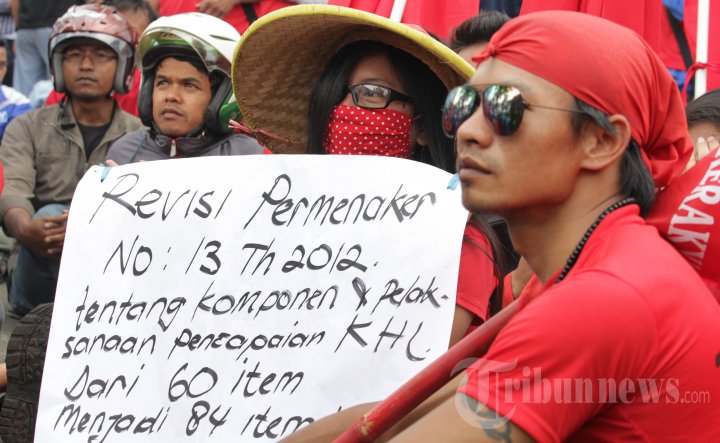 Revisi Permenaker
No: 13 Th 2012.
tentang komponen & pelak-
sanaan pencapaian KHL
Dari 60 item
Menjadi 84 item
Tribunnews.com